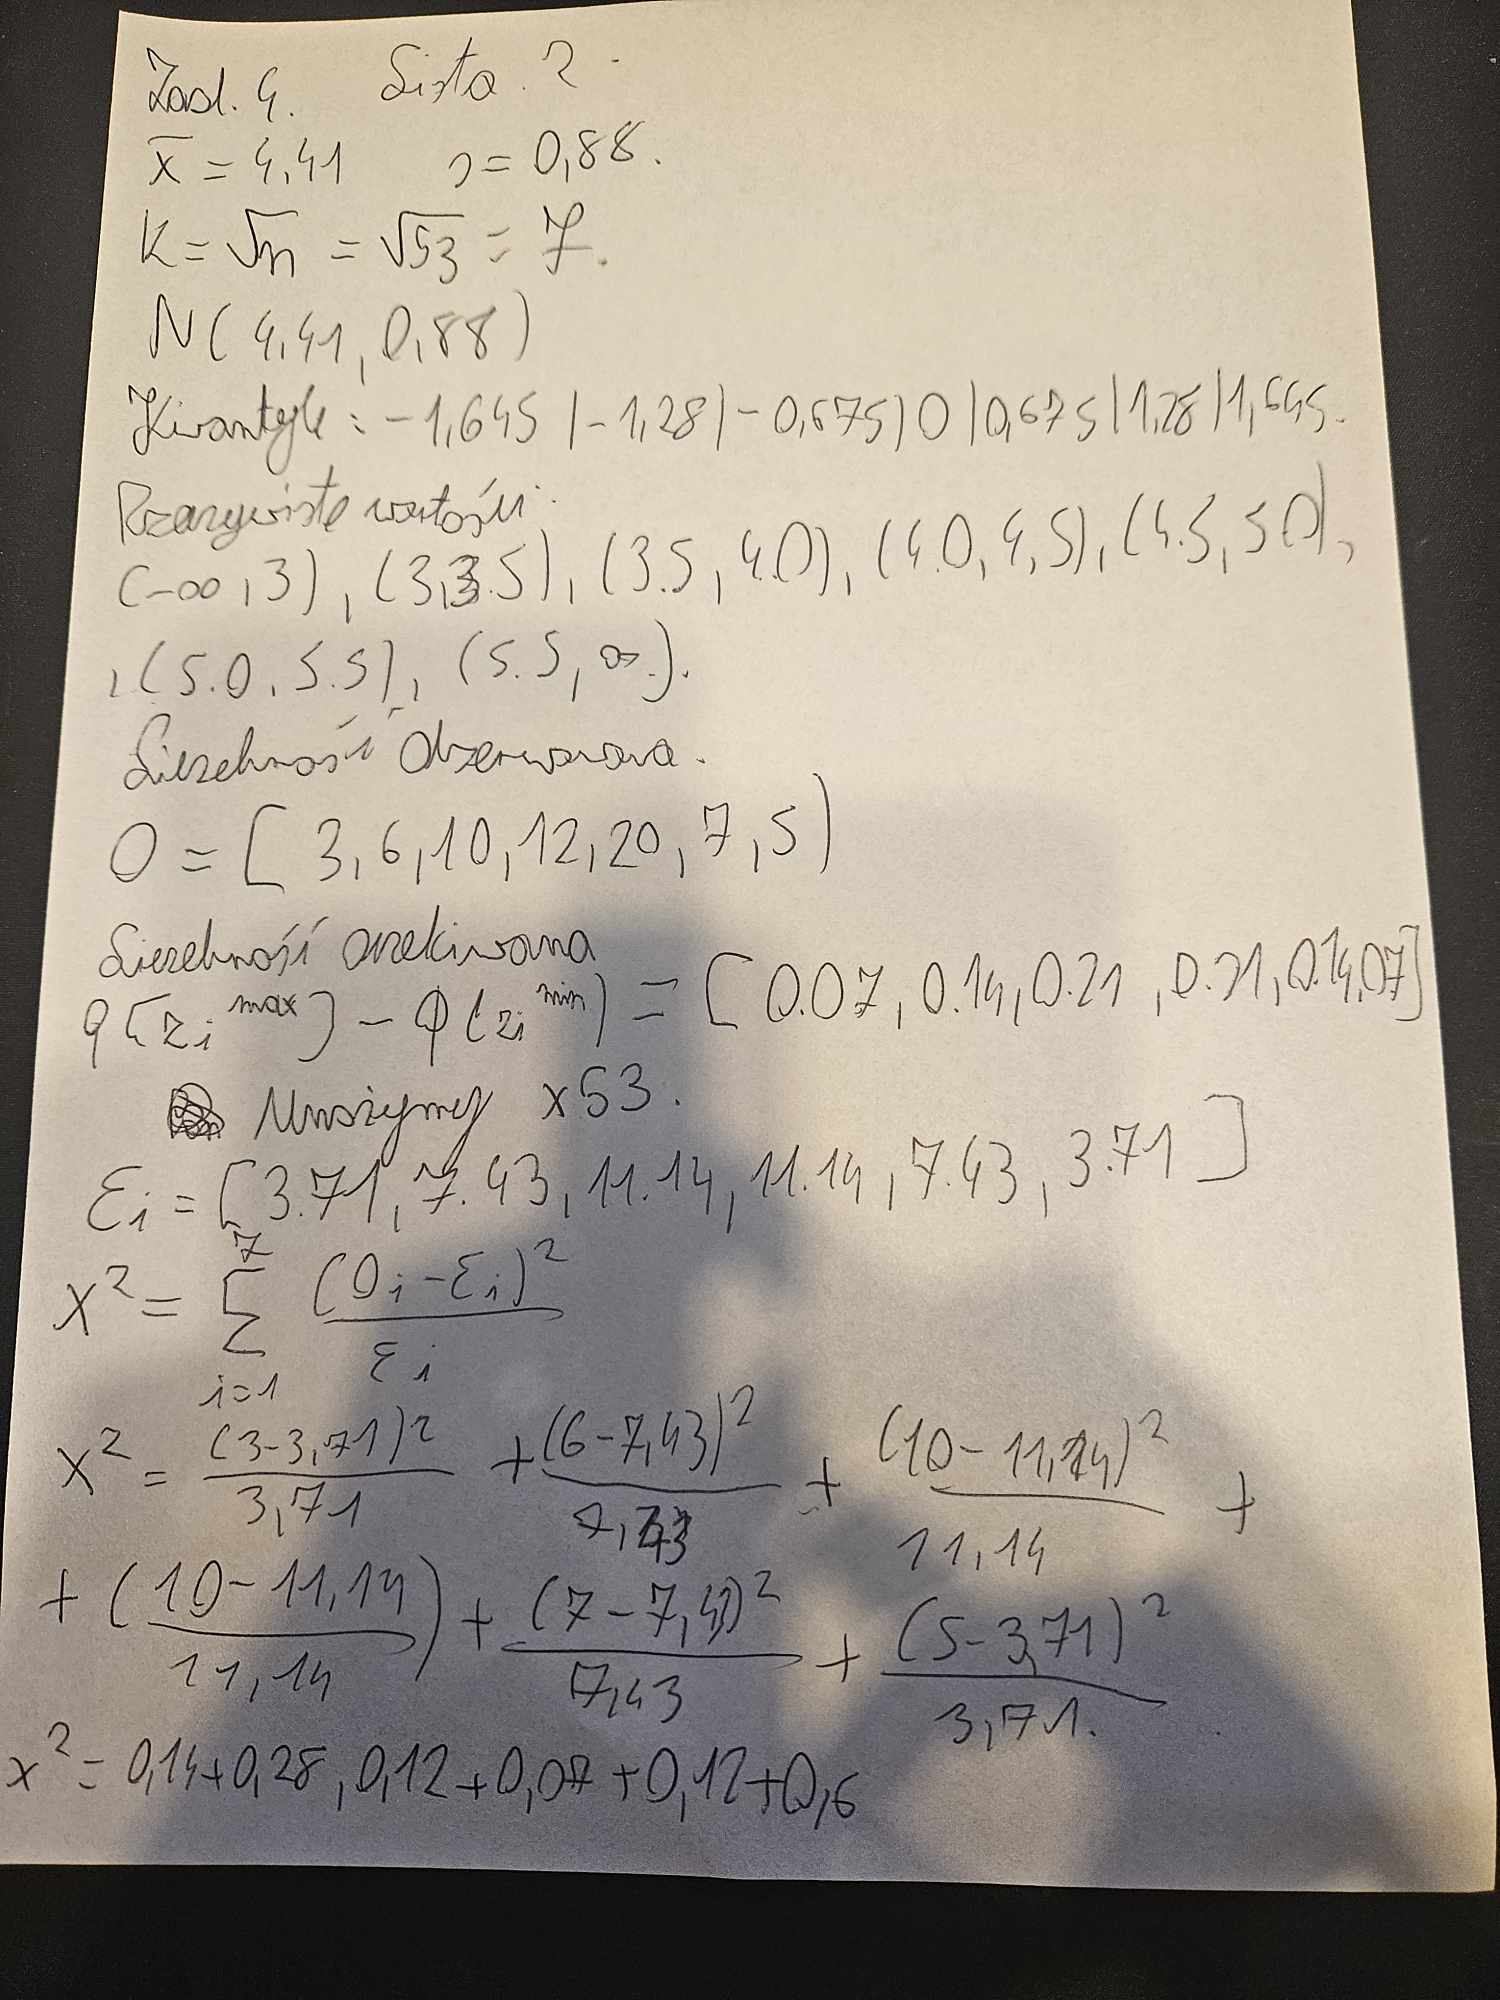 Zad. 4. Lista. 2.
x̄ = 4,41 s = 0,88.
K = √n = √53 = 7.
N(4,41, 0,88)
Kwantyle: -1,645 | -1,28 | -0,675 | 0 | 0,675 | 1,28 | 1,645.
Rzeczywiste wartości.
(-∞, 3), (3, 3.5), (3.5, 4.0), (4.0, 4,5), (4.5, 5 0),
, (5.0, 5.5), (5.5, ∞.).
Liczebność obserwowana.
O = [3, 6, 10, 12, 20, 7, 5)
Liczebność oczekiwana
φ(zi^max) - φ(zi^min) = [0.07, 0.14, 0.21, 0.21, 0.14, 07]
Mnożymy x53.
Ei = [3.71, 7.43, 11.14, 11.14, 7.43, 3.71]
x² = Σ_{i=1}^{7} (Oi - Ei)² / Ei
x² = (3-3,71)² / 3,71 + (6-7,43)² / 7,43 + (10-11,14)² / 11,14 +
+ (10-11,14 / 11,14) + (7-7,43)² / 7,43 + (5-3,71)² / 3,71.
x² = 0,14+0,28, 0,12+0,07+0,12+0,6